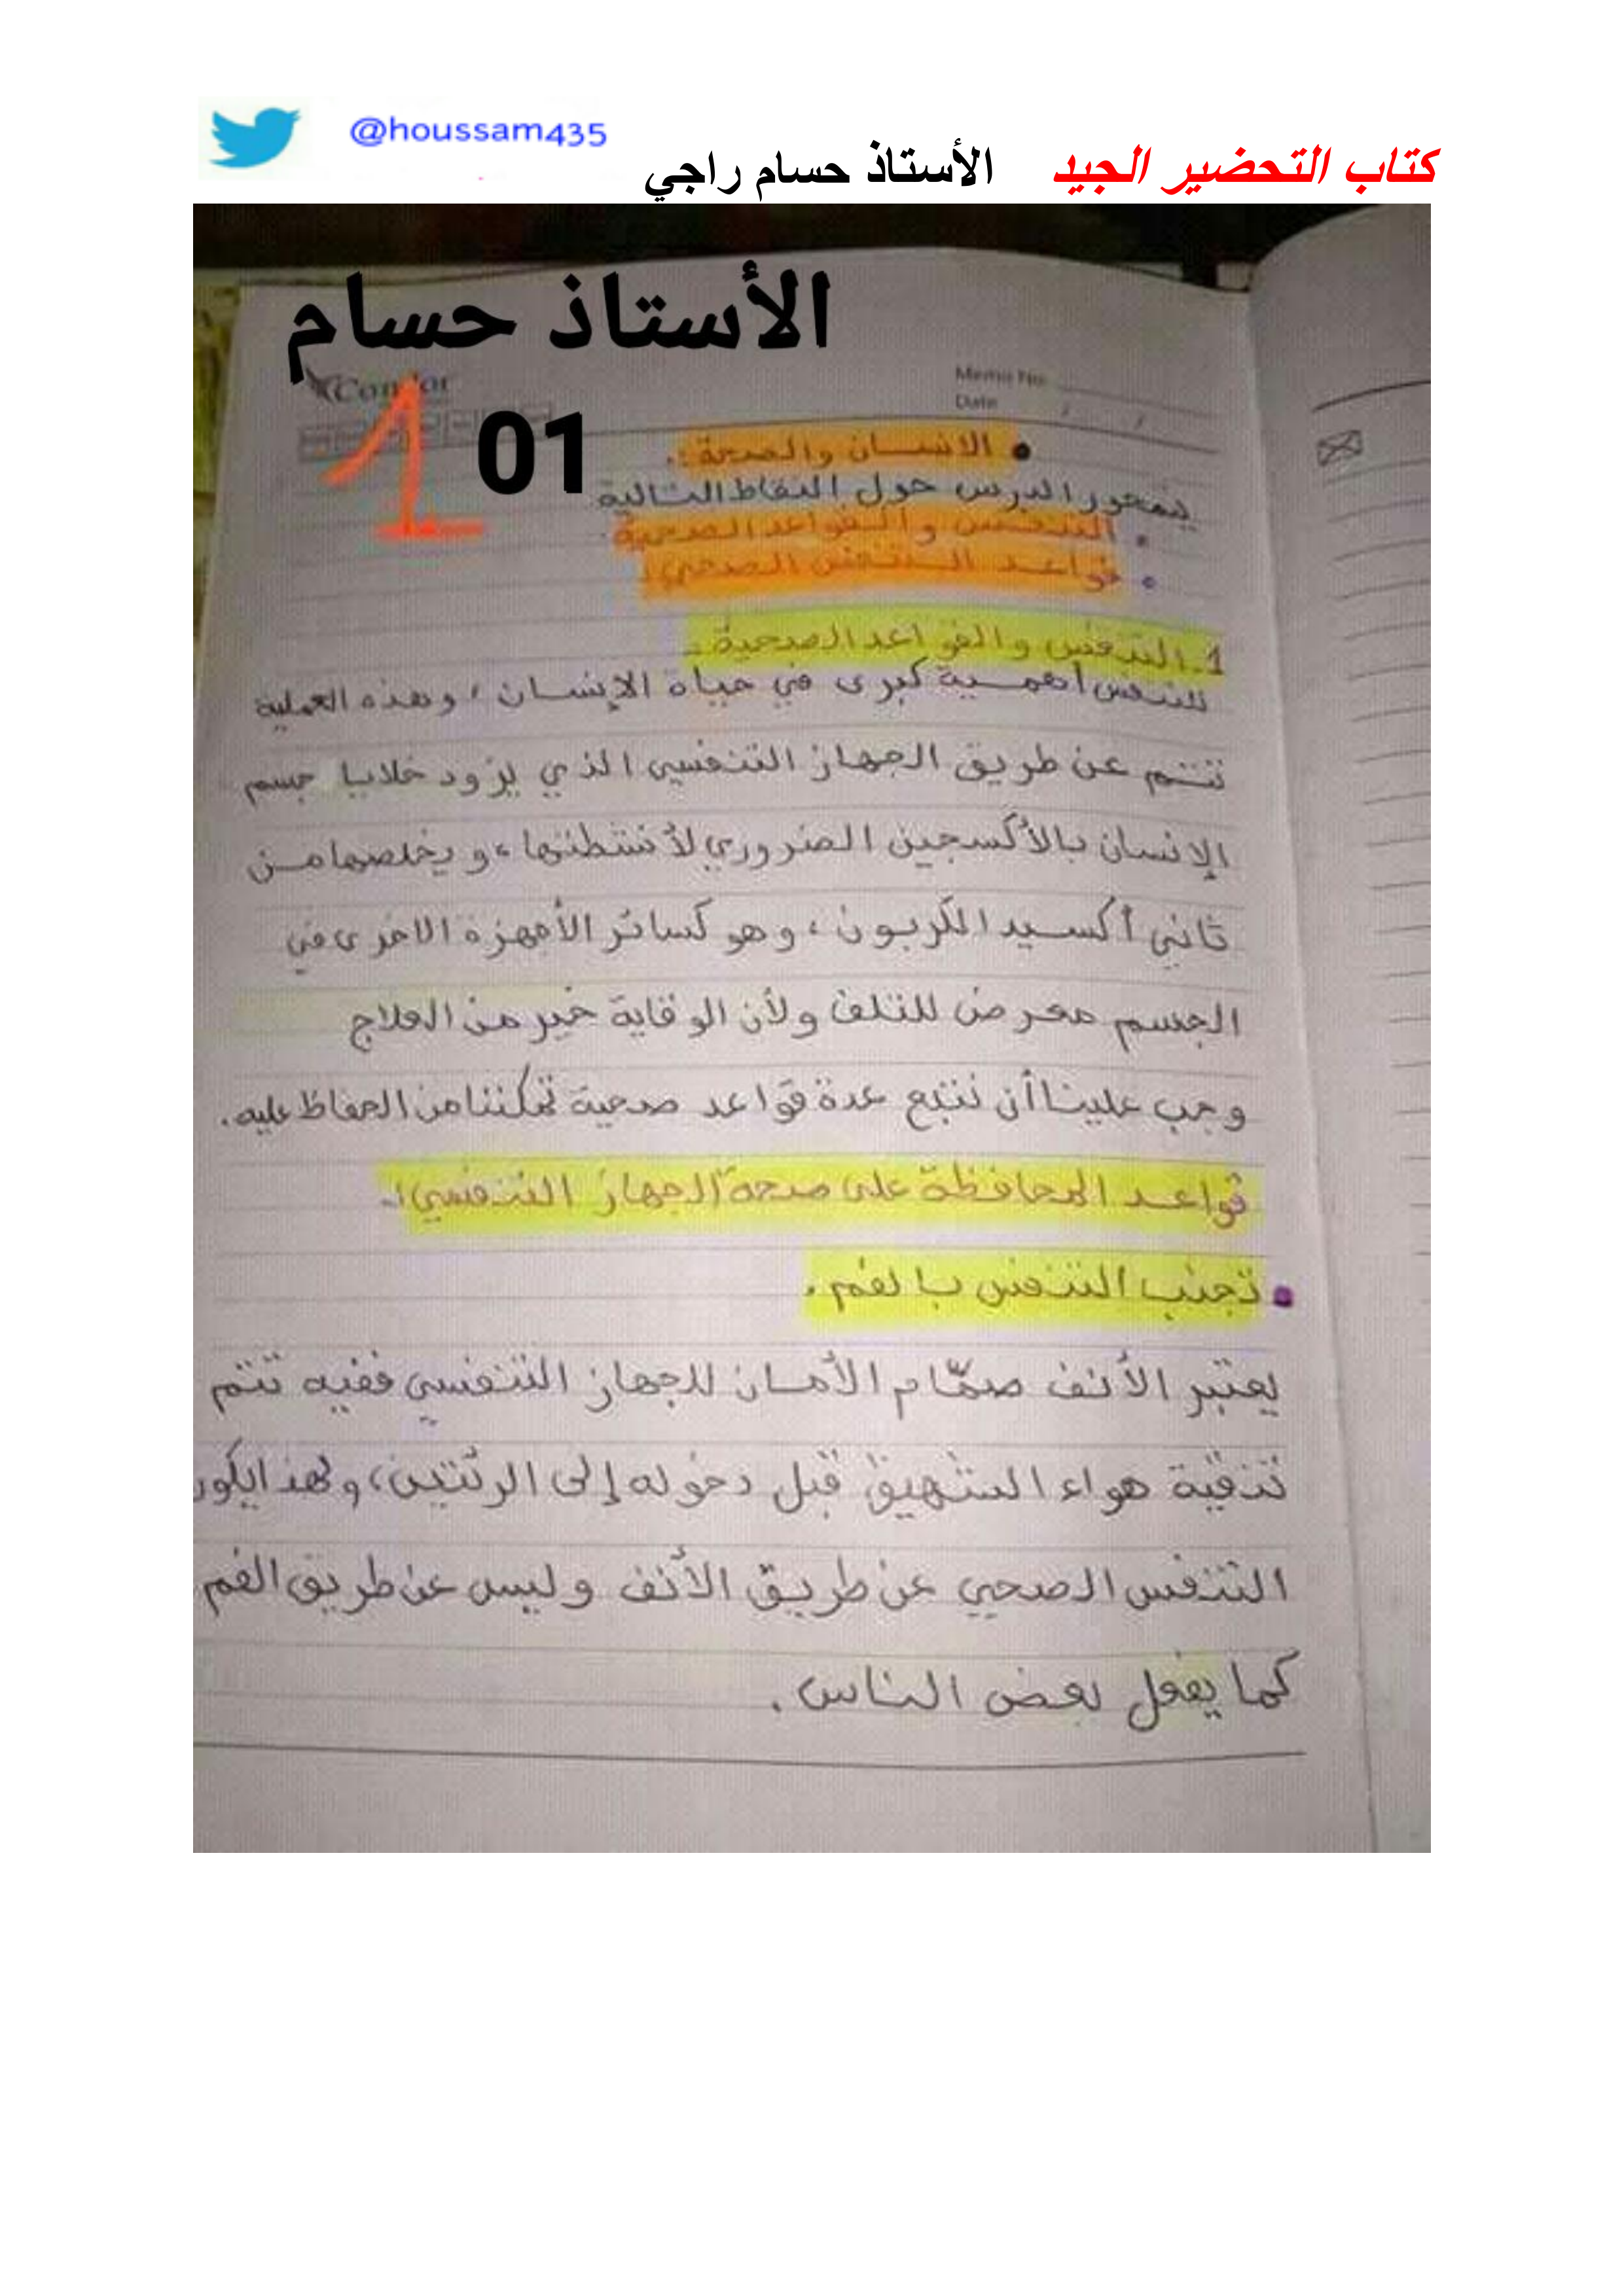 @houssam435
كتاب التحضير الجيد الأستاذ حسام راجي
الأستاذ حسام
Condor
Memo No.
Date / /
1
01
• الانسان والصحة :.
يتمحور الدرس حول النقاط التالية
• التنفس والقواعد الصحية.
• قواعد التنفس الصحي.
1. التنفس والقواعد الصحية -
للتنفس أهمية كبرى في حياة الإنسان ، وهذه العملية
تتم عن طريق الجهاز التنفسي الذي يزود خلايا جسم
الإنسان بالأكسجين الضروري لأنشطتها ، و يخلصها من
ثاني أكسيد الكربون ، وهو كسائر الأجهزة الاخرى في
الجسم معرض للتلف ولأن الوقاية خير من العلاج
وجب علينا أن نتبع عدة قواعد صحية تمكننا من الحفاظ عليه.
قواعد المحافظة على صحة الجهاز التنفسي :-
• تجنب التنفس بالفم .
يعتبر الأنف صمّام الأمان للجهاز التنفسي ففيه تتم
تنقية هواء الشهيق قبل دخوله إلى الرئتين ، و لهذا يكون
التنفس الصحي عن طريق الأنف وليس عن طريق الفم
كما يفعل بعض الناس .